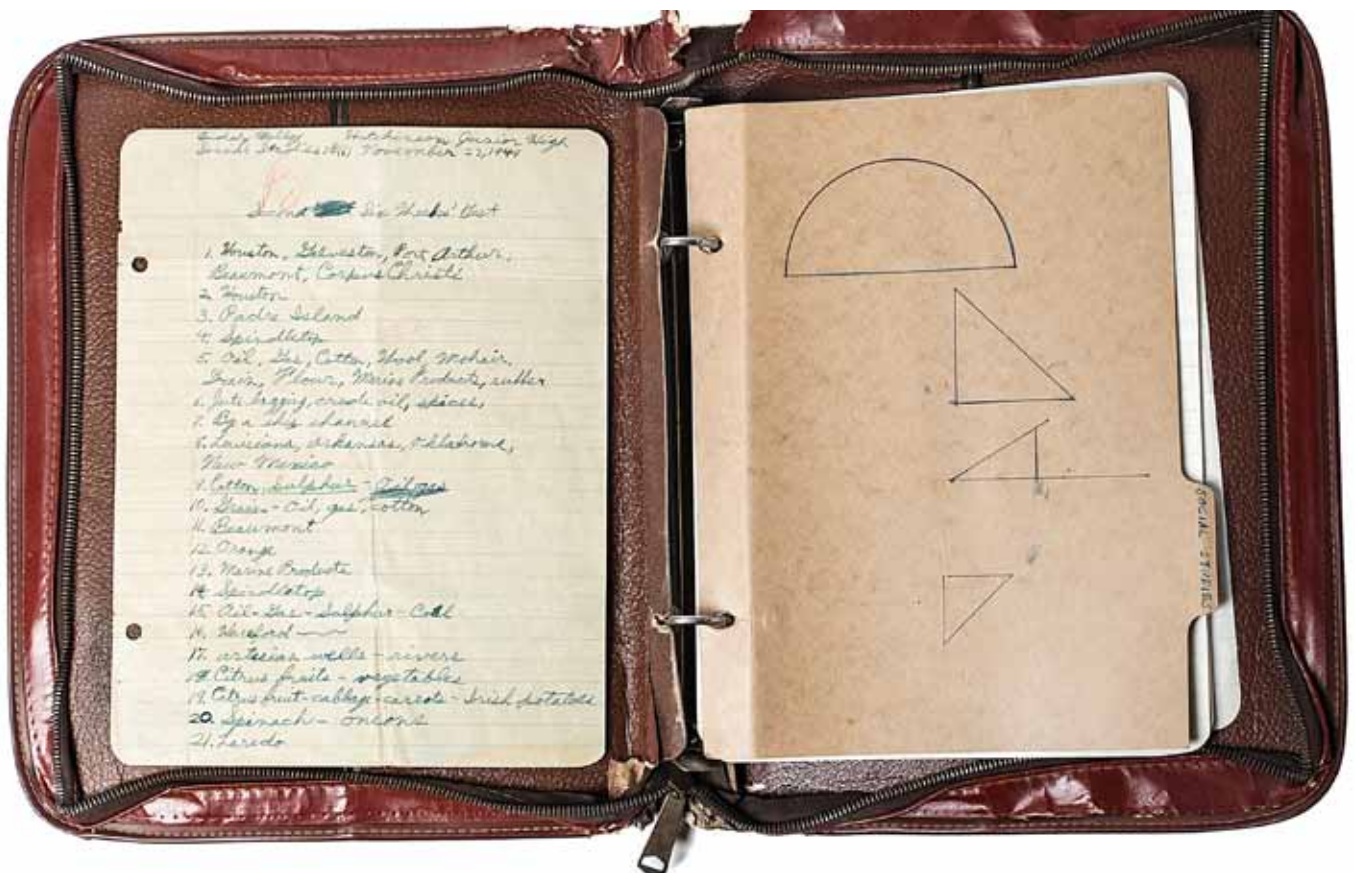 Holley Hutchinson Junior High
Social Studies November 22, 1949
Second Six Weeks' Test
1. Houston, Galveston, Port Arthur,
Beaumont, Corpus Christi
2. Houston
3. Padre Island
4. Spindletop
5. Oil, Gas, Cotton, Wool, Mohair,
Grain, Flour, Marine Products, rubber
6. Jute bagging, crude oil, spices,
7. By a ship channel
8. Louisiana, Arkansas, Oklahoma,
New Mexico
9. Cotton, Sulphur -
10. Grass - Oil, gas, cotton
11. Beaumont
12. Orange
13. Marine Products
14. Spindletop
15. Oil - Gas - Sulphur - Coal
16. Hereford
17. artesian wells - rivers
18. Citrus fruits - vegetables
19. Citrus fruit - cabbage - carrots - Irish potatoes
20. Spinach - onions
21. Laredo
SOCIAL STUDIES